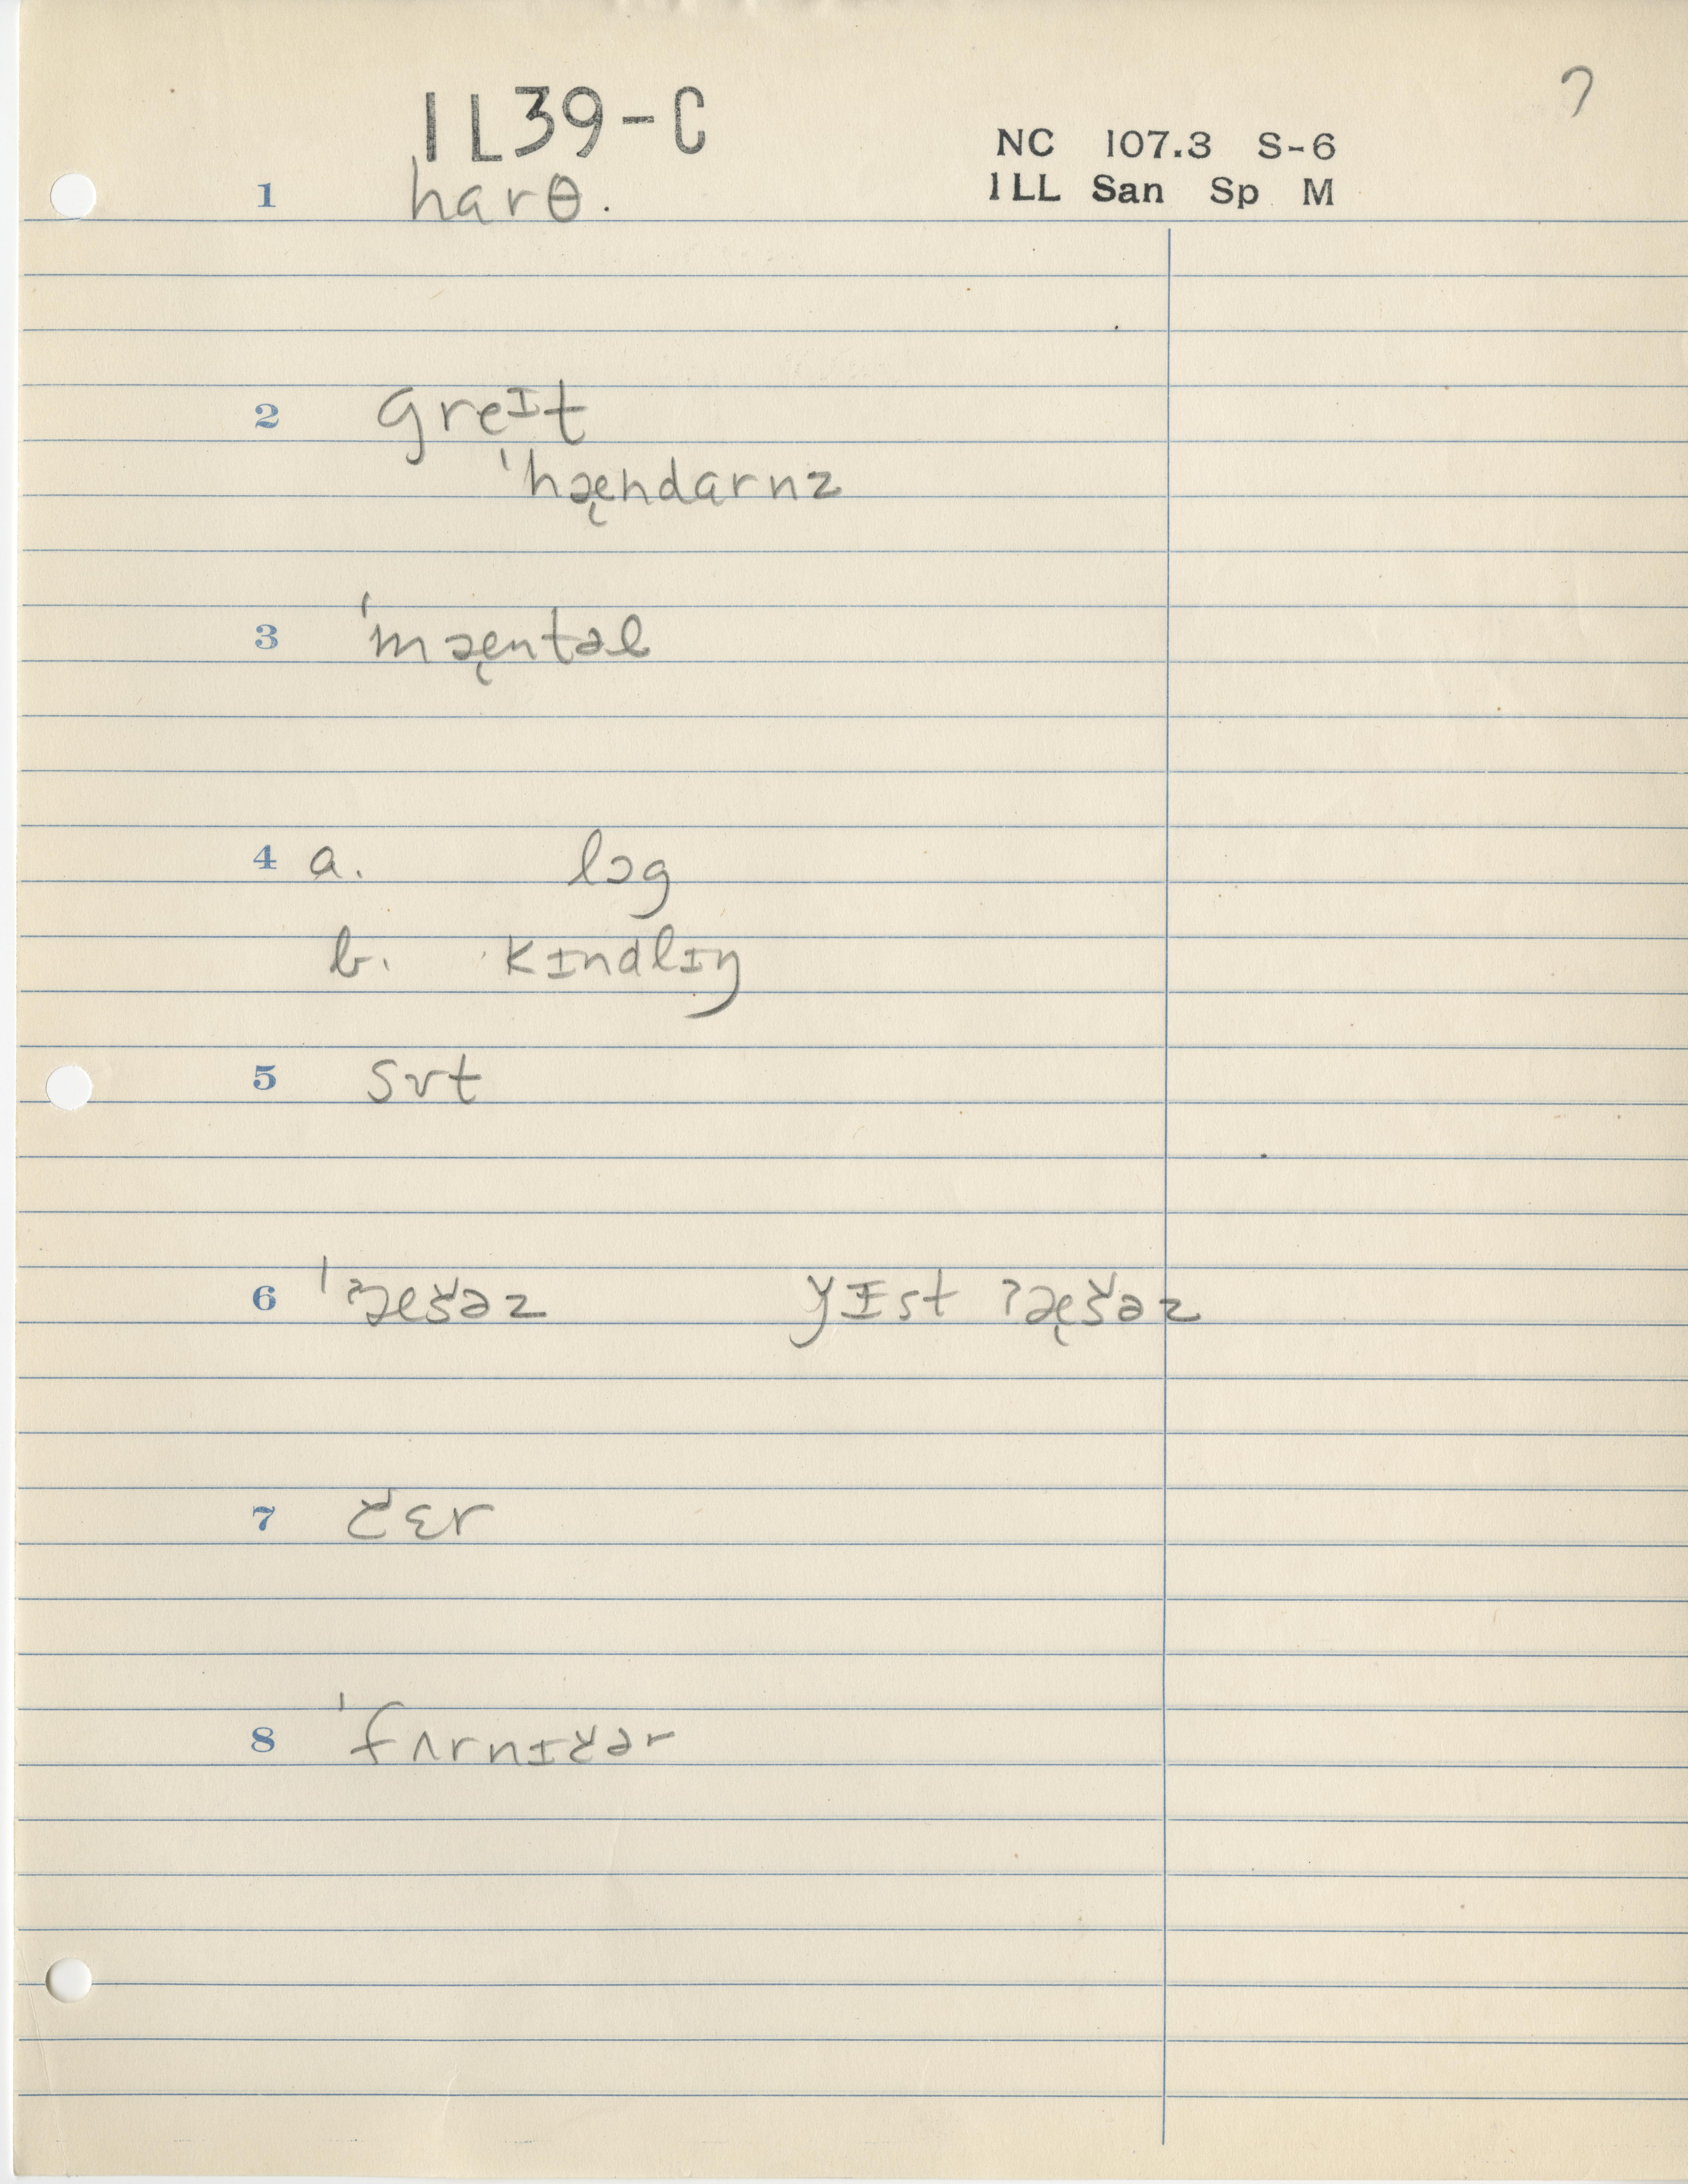 7
IL39-C
NC 107.3 S-6
ILL San Sp M
1 harθ.
2 greɪt
ˈhæ̨ndarnz
3 ˈmæ̨ntəl
4 a. lɔg
b. kɪndlɪŋ
5 sʌt
6 ˈʔæšəz yɪst ʔæ̨šəz
7 čɛr
8 ˈfʌrnɪčər